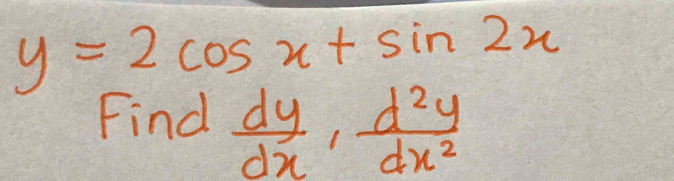 y = 2 cos x + sin 2x
Find dy/dx, d²y/dx²